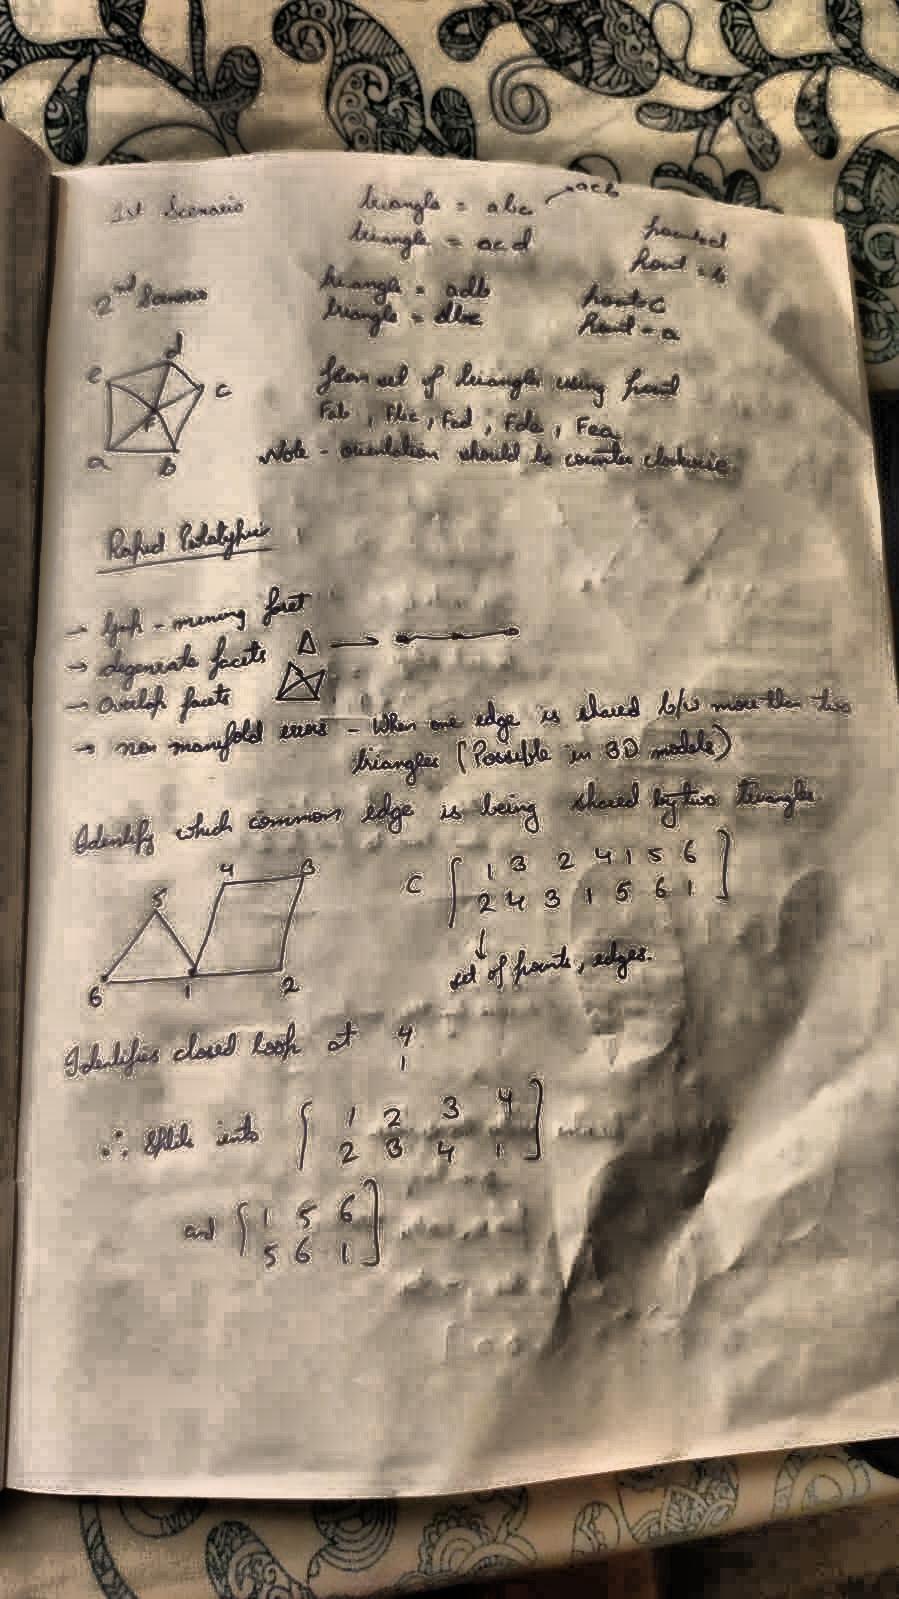 1st Scenario
triangle = abc → acb
triangle = acd
point d
point = b
2nd Scenario
triangle = adb
triangle = dbc
point c
point = a
d
e
c
F
a b
set of triangles using point
Fab, Fbc, Fcd, Fde, Fea
Note - orientation should be counter clockwise
Rapid Prototyping
→ Gap - missing facet
→ degenerate facets
→ Overlap facets
→ non manifold errors - When one edge is shared b/w more than two
triangles (Possible in 3D models)
Identify which common edge is being shared by two triangles
4 3
5
6 1 2
C [ 1 3 2 4 1 5 6
2 4 3 1 5 6 1 ]
set of points, edges.
Identifies closed loop at 4
1
∴ Splits into [ 1 2 3 4
2 3 4 1 ]
and [ 1 5 6
5 6 1 ]